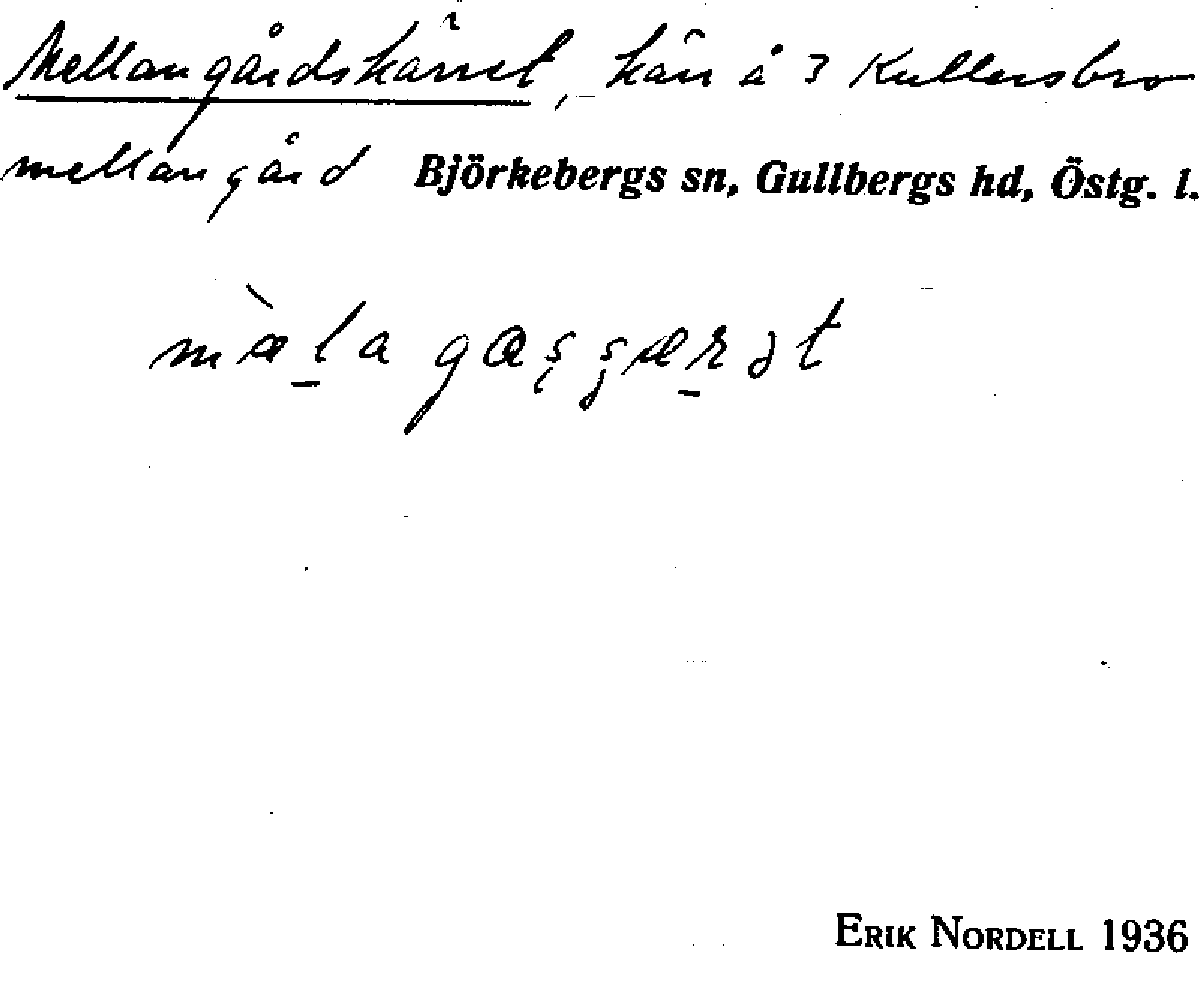 Mellangårdskärret, kärr å 3 Kullersbro
mellangård Björkebergs sn, Gullbergs hd, Östg. l.
ERIK NORDELL 1936